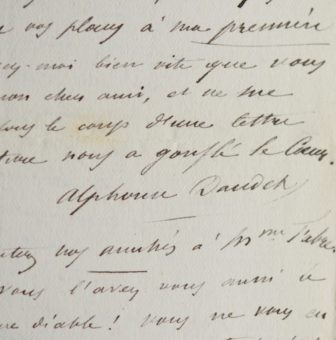 vos places à ma première
-moi bien vite que vous
mon cher ami, et ne me
le coup d'une lettre
nous a gonflé le cœur.
Alphonse Daudet
nos amitiés à Mme Fabre
vous l'avez vous aussi à
diable! Vous ne vous en